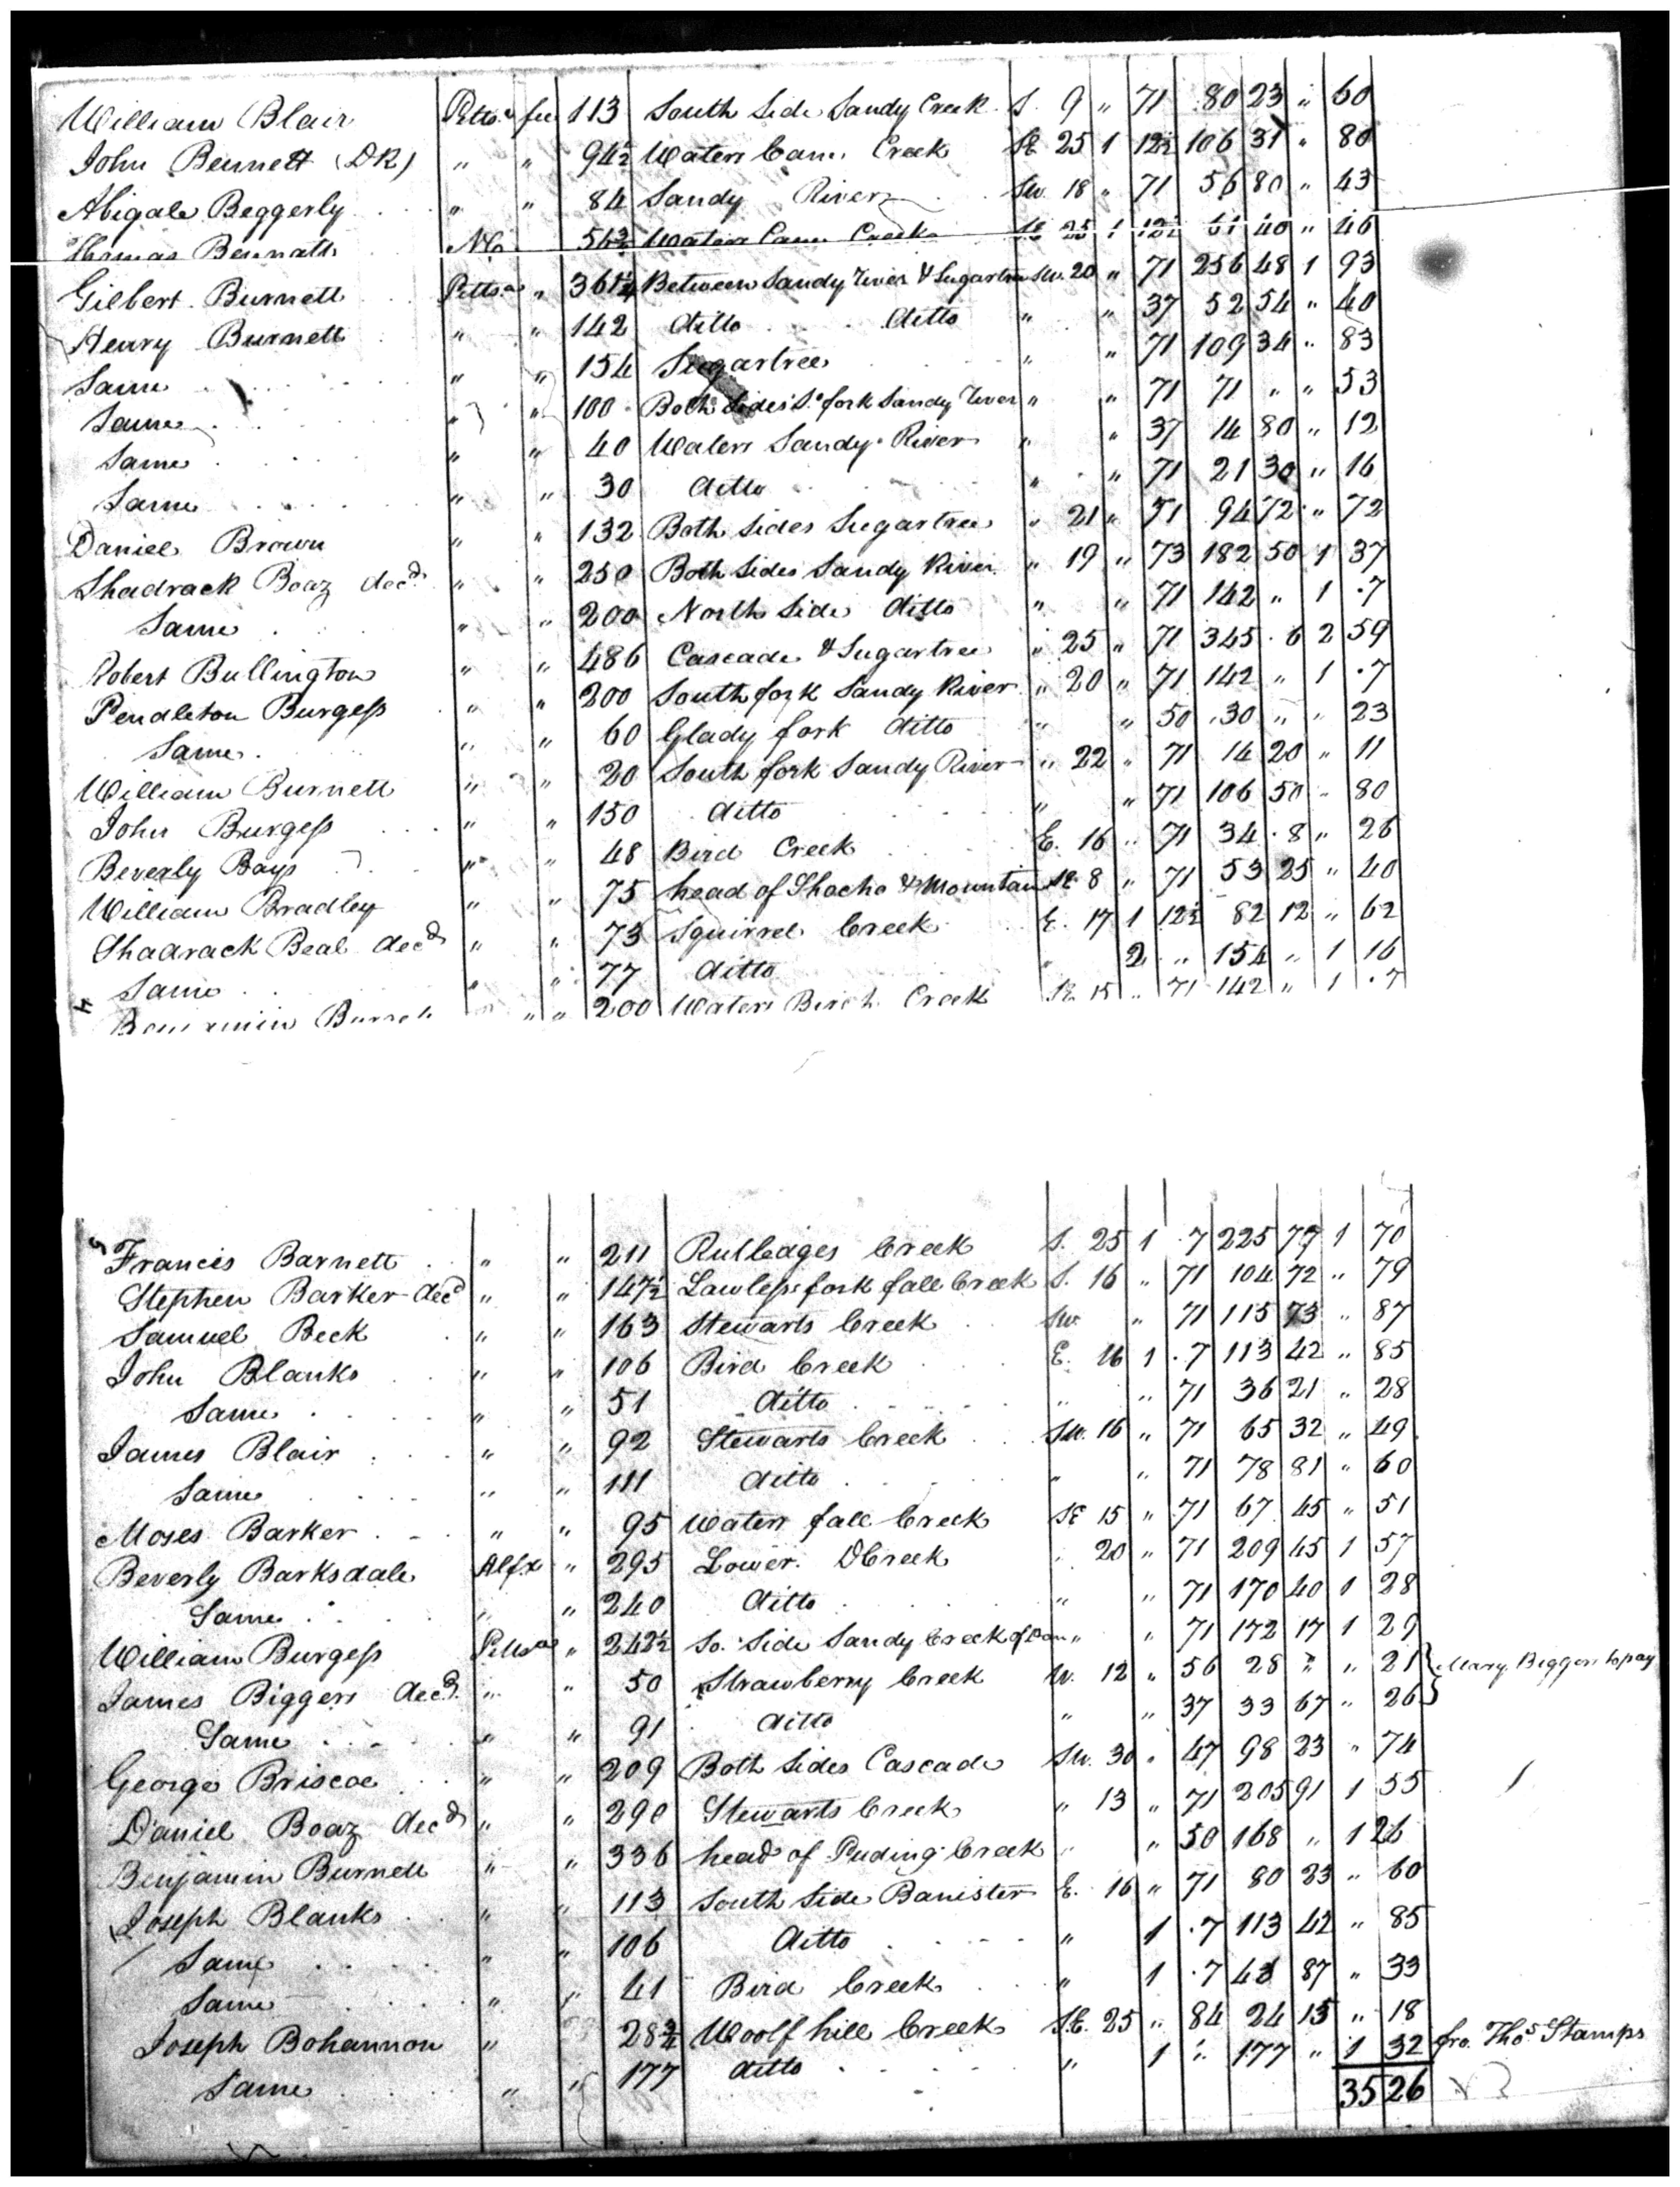 William Blair Pittsa fee 113 South Side Sandy Creek S. 9 " 71 80 23 " 60
John Bennett (DR) " " 94½ Waters Cane Creek SE 25 1 12½ 106 31 " 80
Abigale Beggerly " " 84 Sandy River SW. 18 " 71 56 80 " 43
Thomas Bennatt NC 56¾ Waters Cane Creek SE 25 1 12½ 61 40 " 46
Gilbert Burnett Pittsa " 361¼ Between Sandy River & Sugartree SW. 20 " 71 256 48 1 93
Henry Burnett " " 142 ditto ditto " " 37 52 54 " 40
Same " " 154 Sugartree " " 71 109 34 " 83
Same " " 100 Both Sides So. fork Sandy River " " 71 71 " " 53
Same " " 40 Waters Sandy River " " 37 14 80 " 12
Same " " 30 ditto " " 71 21 30 " 16
Daniel Brown " " 132 Both Sides Sugartree " 21 " 71 94 72 " 72
Shadrack Boaz decd " " 250 Both Sides Sandy River " 19 " 73 182 50 1 37
Same " " 200 North Side ditto " " 71 142 " 1 .7
Robert Bullington " " 486 Cascade & Sugartree " 25 " 71 345 .6 2 59
Pendleton Burgess " " 200 South fork Sandy River " 20 " 71 142 " 1 .7
Same " " 60 Glady fork ditto " " 50 30 " " 23
William Burnett " " 20 South fork Sandy River " 22 " 71 14 20 " 11
John Burgess " " 150 ditto " " 71 106 50 " 80
Beverly Bays " " 48 Bird Creek E. 16 " 71 34 .8 " 26
William Bradley " " 75 head of Shocho & Mountain SE. 8 " 71 53 25 " 40
Shadrack Beal decd " " 73 Squirrel Creek E. 17 1 12½ 82 12 " 62
Same " " 77 ditto " 2 " 154 " 1 16
Benjamin " " 200 Waters Birch Creek SE. 15 " 71 142 " 1 .7
Francis Barnett " " 211 Rutledges Creek S. 25 1 .7 225 77 1 70
Stephen Barker decd " " 147½ Lawless fork fall Creek S. 16 " 71 104 72 " 79
Samuel Beck " " 163 Stewarts Creek SW. " 71 115 73 " 87
John Blanks " " 106 Bird Creek E. 16 1 .7 113 42 " 85
Same " " 51 ditto " " 71 36 21 " 28
James Blair " " 92 Stewarts Creek SW. 16 " 71 65 32 " 49
Same " " 111 ditto " " 71 78 81 " 60
Moses Barker " " 95 Waters fall Creek SE 15 " 71 67 45 " 51
Beverly Barksdale Alfx " 295 Lower DCreek " 20 " 71 209 45 1 57
Same " " 240 ditto " " 71 170 40 1 28
William Burgess Pittsa " 242½ So. Side Sandy Creek of Dan " " 71 172 17 1 29
James Biggers decd. " " 50 Strawberry Creek W. 12 " 56 28 " " 21 } Mary Biggers to pay
Same " " 91 ditto " " 37 33 67 " 26
George Briscoe " " 209 Both Sides Cascade SW. 30 " 47 98 23 " 74
Daniel Boaz decd " " 290 Stewarts Creek " 13 " 71 205 91 1 55
Benjamin Burnett " " 336 head of Puding Creek " " 50 168 " 1 26
Joseph Blanks " " 113 South Side Banister E. 16 " 71 80 23 " 60
Same " " 106 ditto " 1 .7 113 42 " 85
Same " " 41 Bird Creek " 1 .7 43 87 " 33
Joseph Bohannon " 28¾ Woolf hill Creek S.E. 25 " 84 24 15 " 18
Same " " 177 ditto " 1 " 177 " 1 32 fro. Thos Stamps
35 26